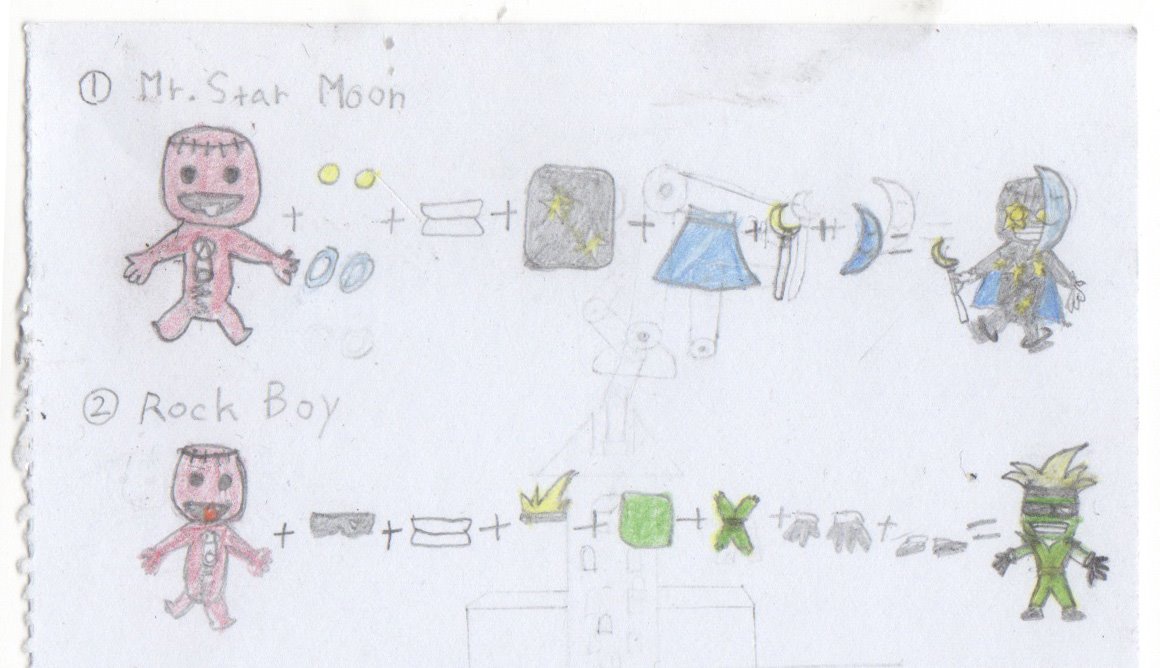 ① Mr. Star Moon
② Rock Boy